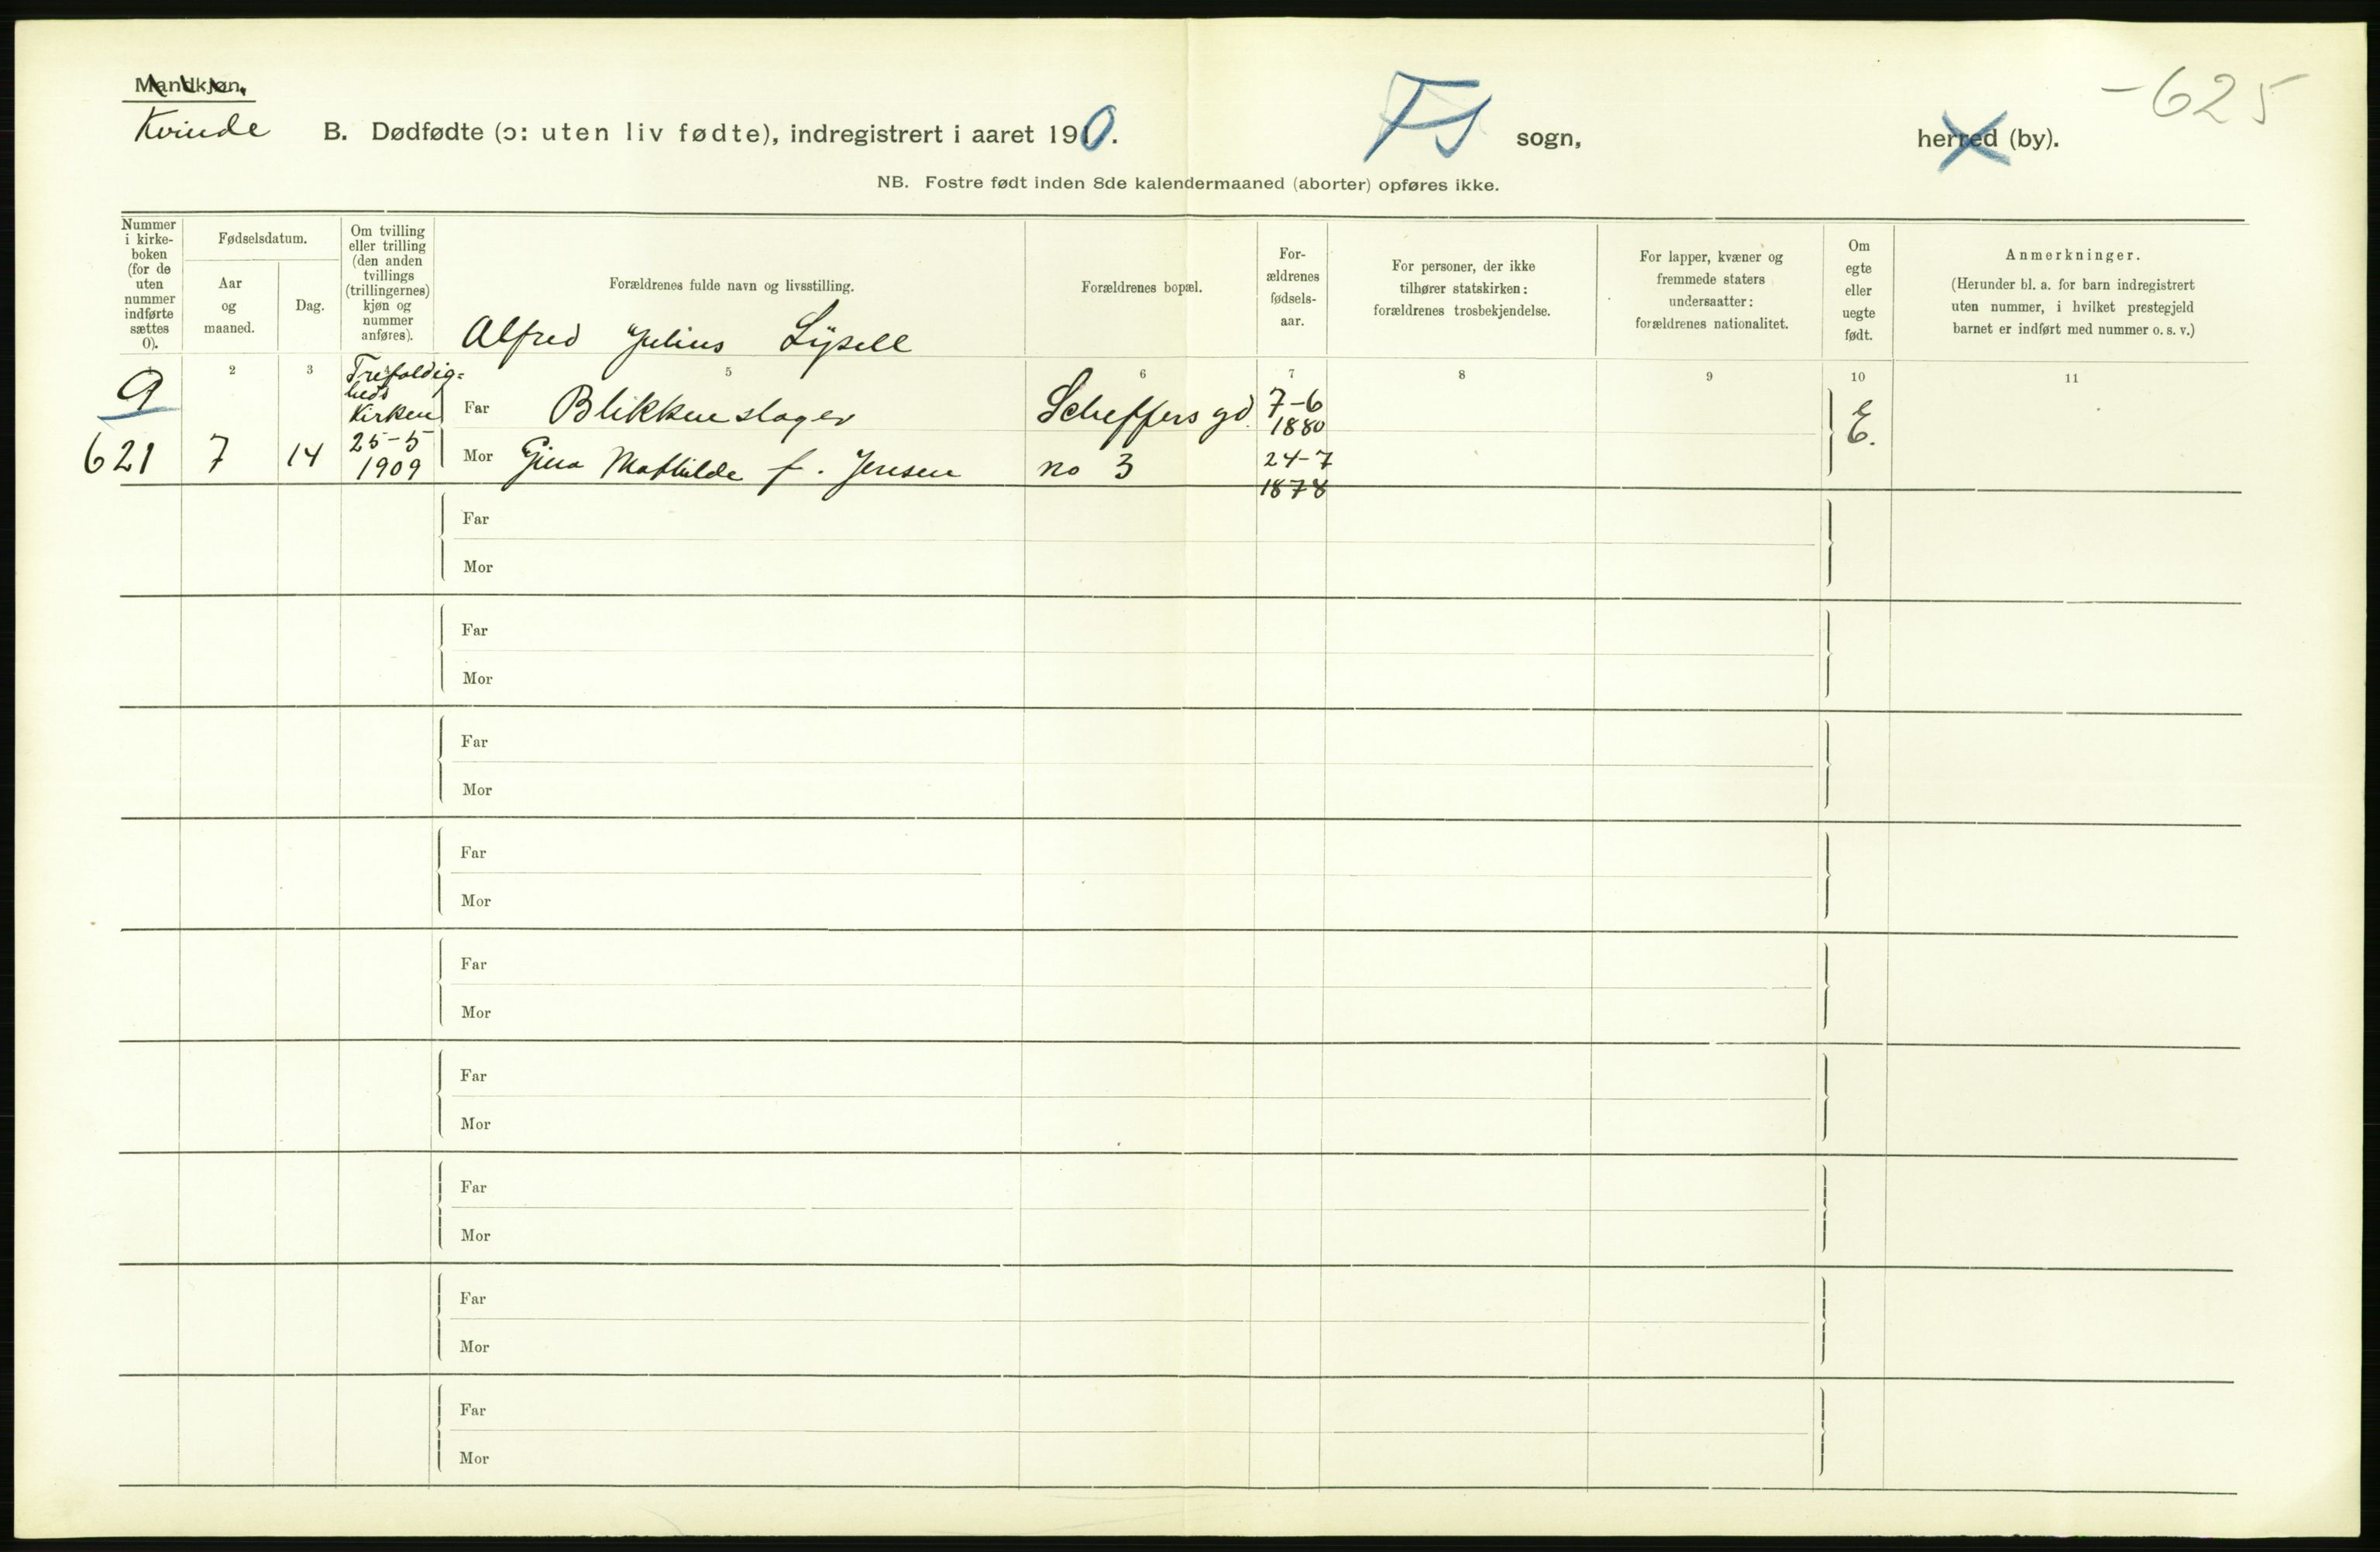 Mandkjøn.
Kvinde
B. Dødfødte (ɔ: uten liv fødte), indregistrert i aaret 1910.
FS sogn,
herred (by).
-625
NB. Fostre født inden 8de kalendermaaned (aborter) opføres ikke.
Nummer
i kirke-
boken
(for de
uten
nummer
indførte
sættes
0).
Fødselsdatum.
Aar
og
maaned.
Dag.
Om tvilling
eller trilling
(den anden
tvillings
(trillingernes)
kjøn og
nummer
anføres).
Forældrenes fulde navn og livsstilling.
Forældrenes bopæl.
For-
ældrenes
fødsels-
aar.
For personer, der ikke
tilhører statskirken:
forældrenes trosbekjendelse.
For lapper, kvæner og
fremmede staters
undersaatter:
forældrenes nationalitet.
Om
egte
eller
uegte
født.
Anmerkninger.
(Herunder bl. a. for barn indregistrert
uten nummer, i hvilket prestegjeld
barnet er indført med nummer o. s. v.)
2 3 5 6 7 8 9 10 11
9
621
7
14
Trefoldig=
heds
Kirken
25-5
1909
Alfred Julius Lysell
Far Blikkenslager
Mor Gina Mathilde f. Jensen
Scheffers gd.
no 3
7-6
1880
24-7
1878
E.
Far
Mor
Far
Mor
Far
Mor
Far
Mor
Far
Mor
Far
Mor
Far
Mor
Far
Mor
Far
Mor